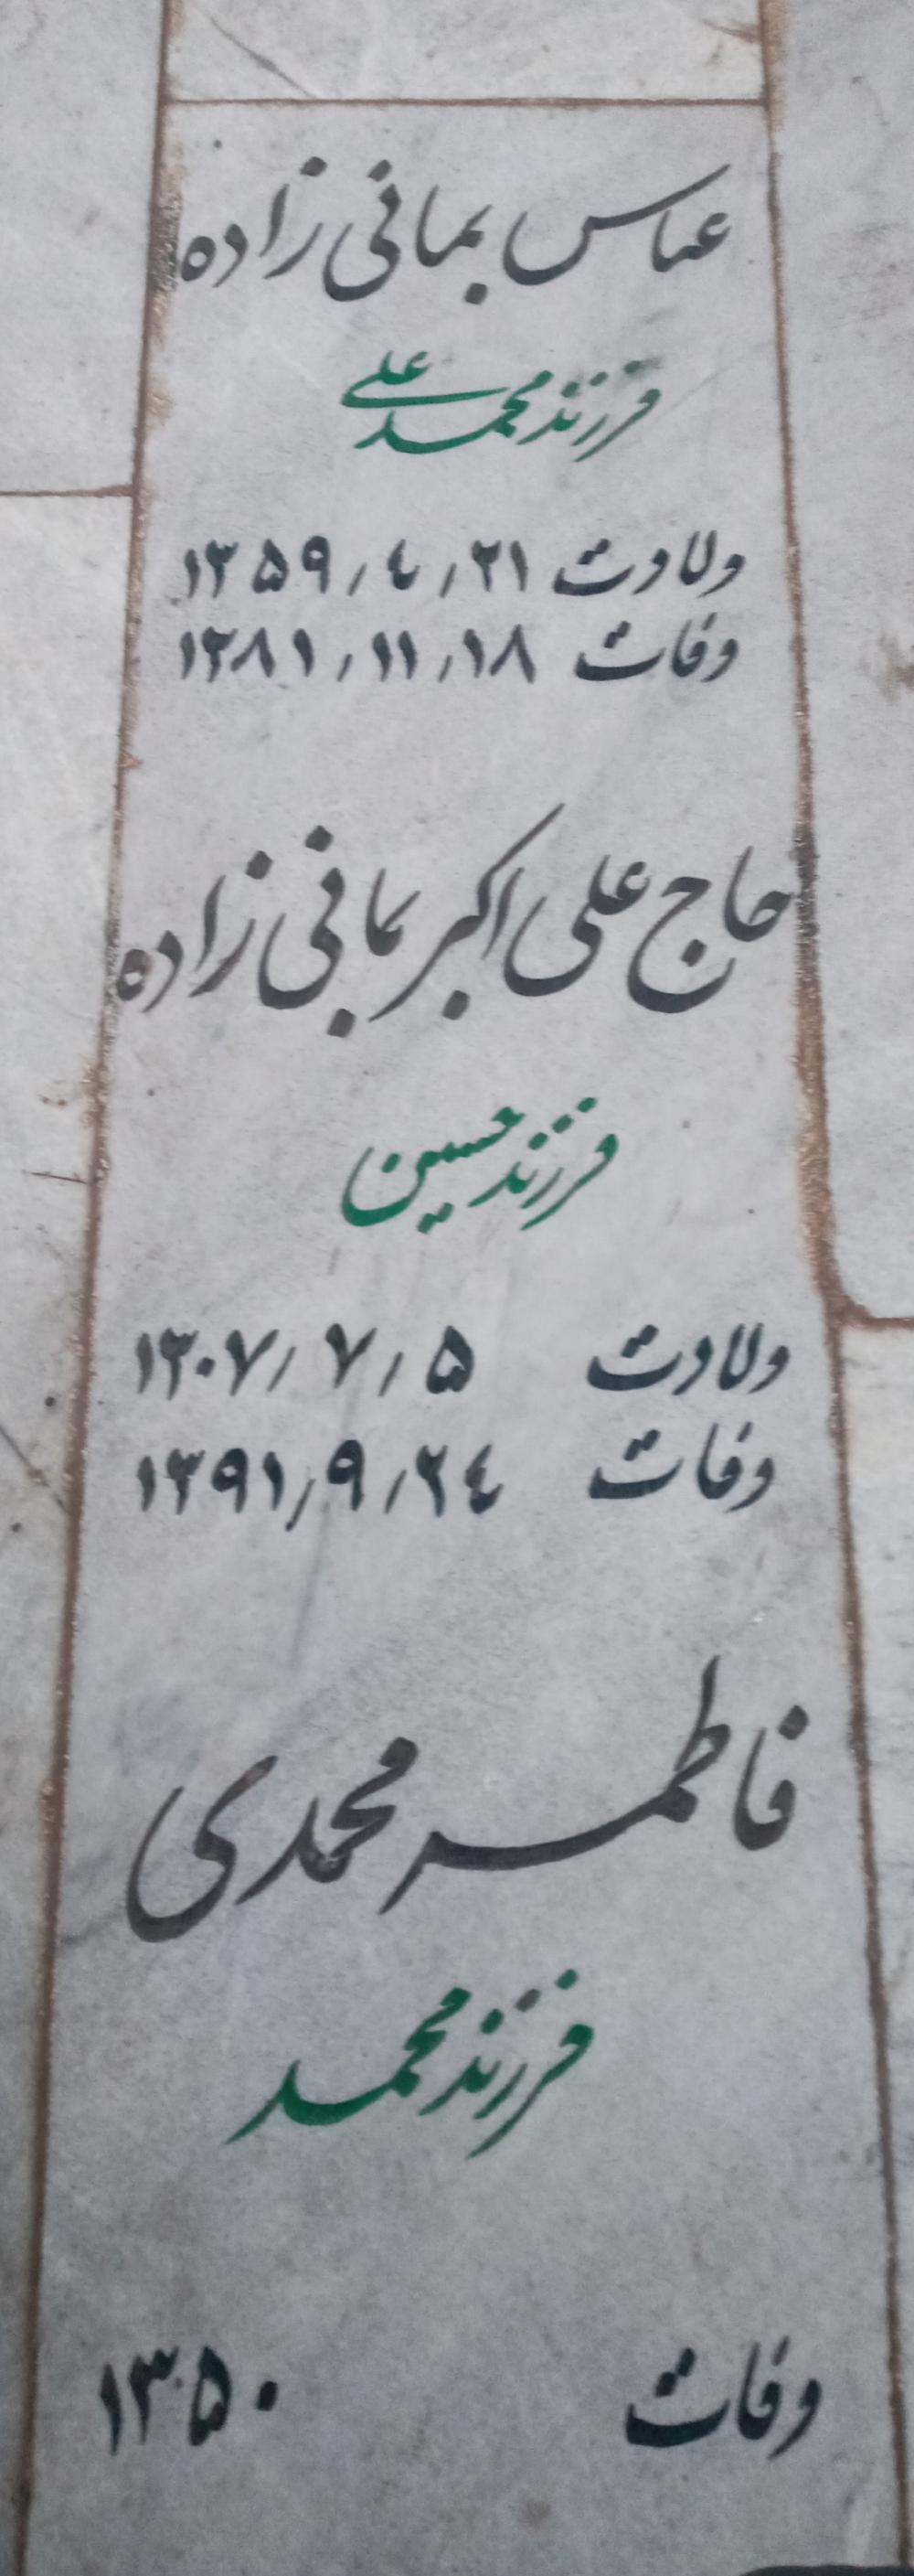 عباس بمانی زاده
فرزند محمد علی
ولادت ۱۳۵۹٫۴٫۲۱
وفات ۱۳۸۱٫۱۱٫۱۸
حاج علی اکبر بمانی زاده
فرزند حسین
ولادت ۱۳۰۷٫۷٫۵
وفات ۱۳۹۱٫۹٫۲۴
فاطمه محمدی
فرزند محمد
وفات ۱۳۵۰